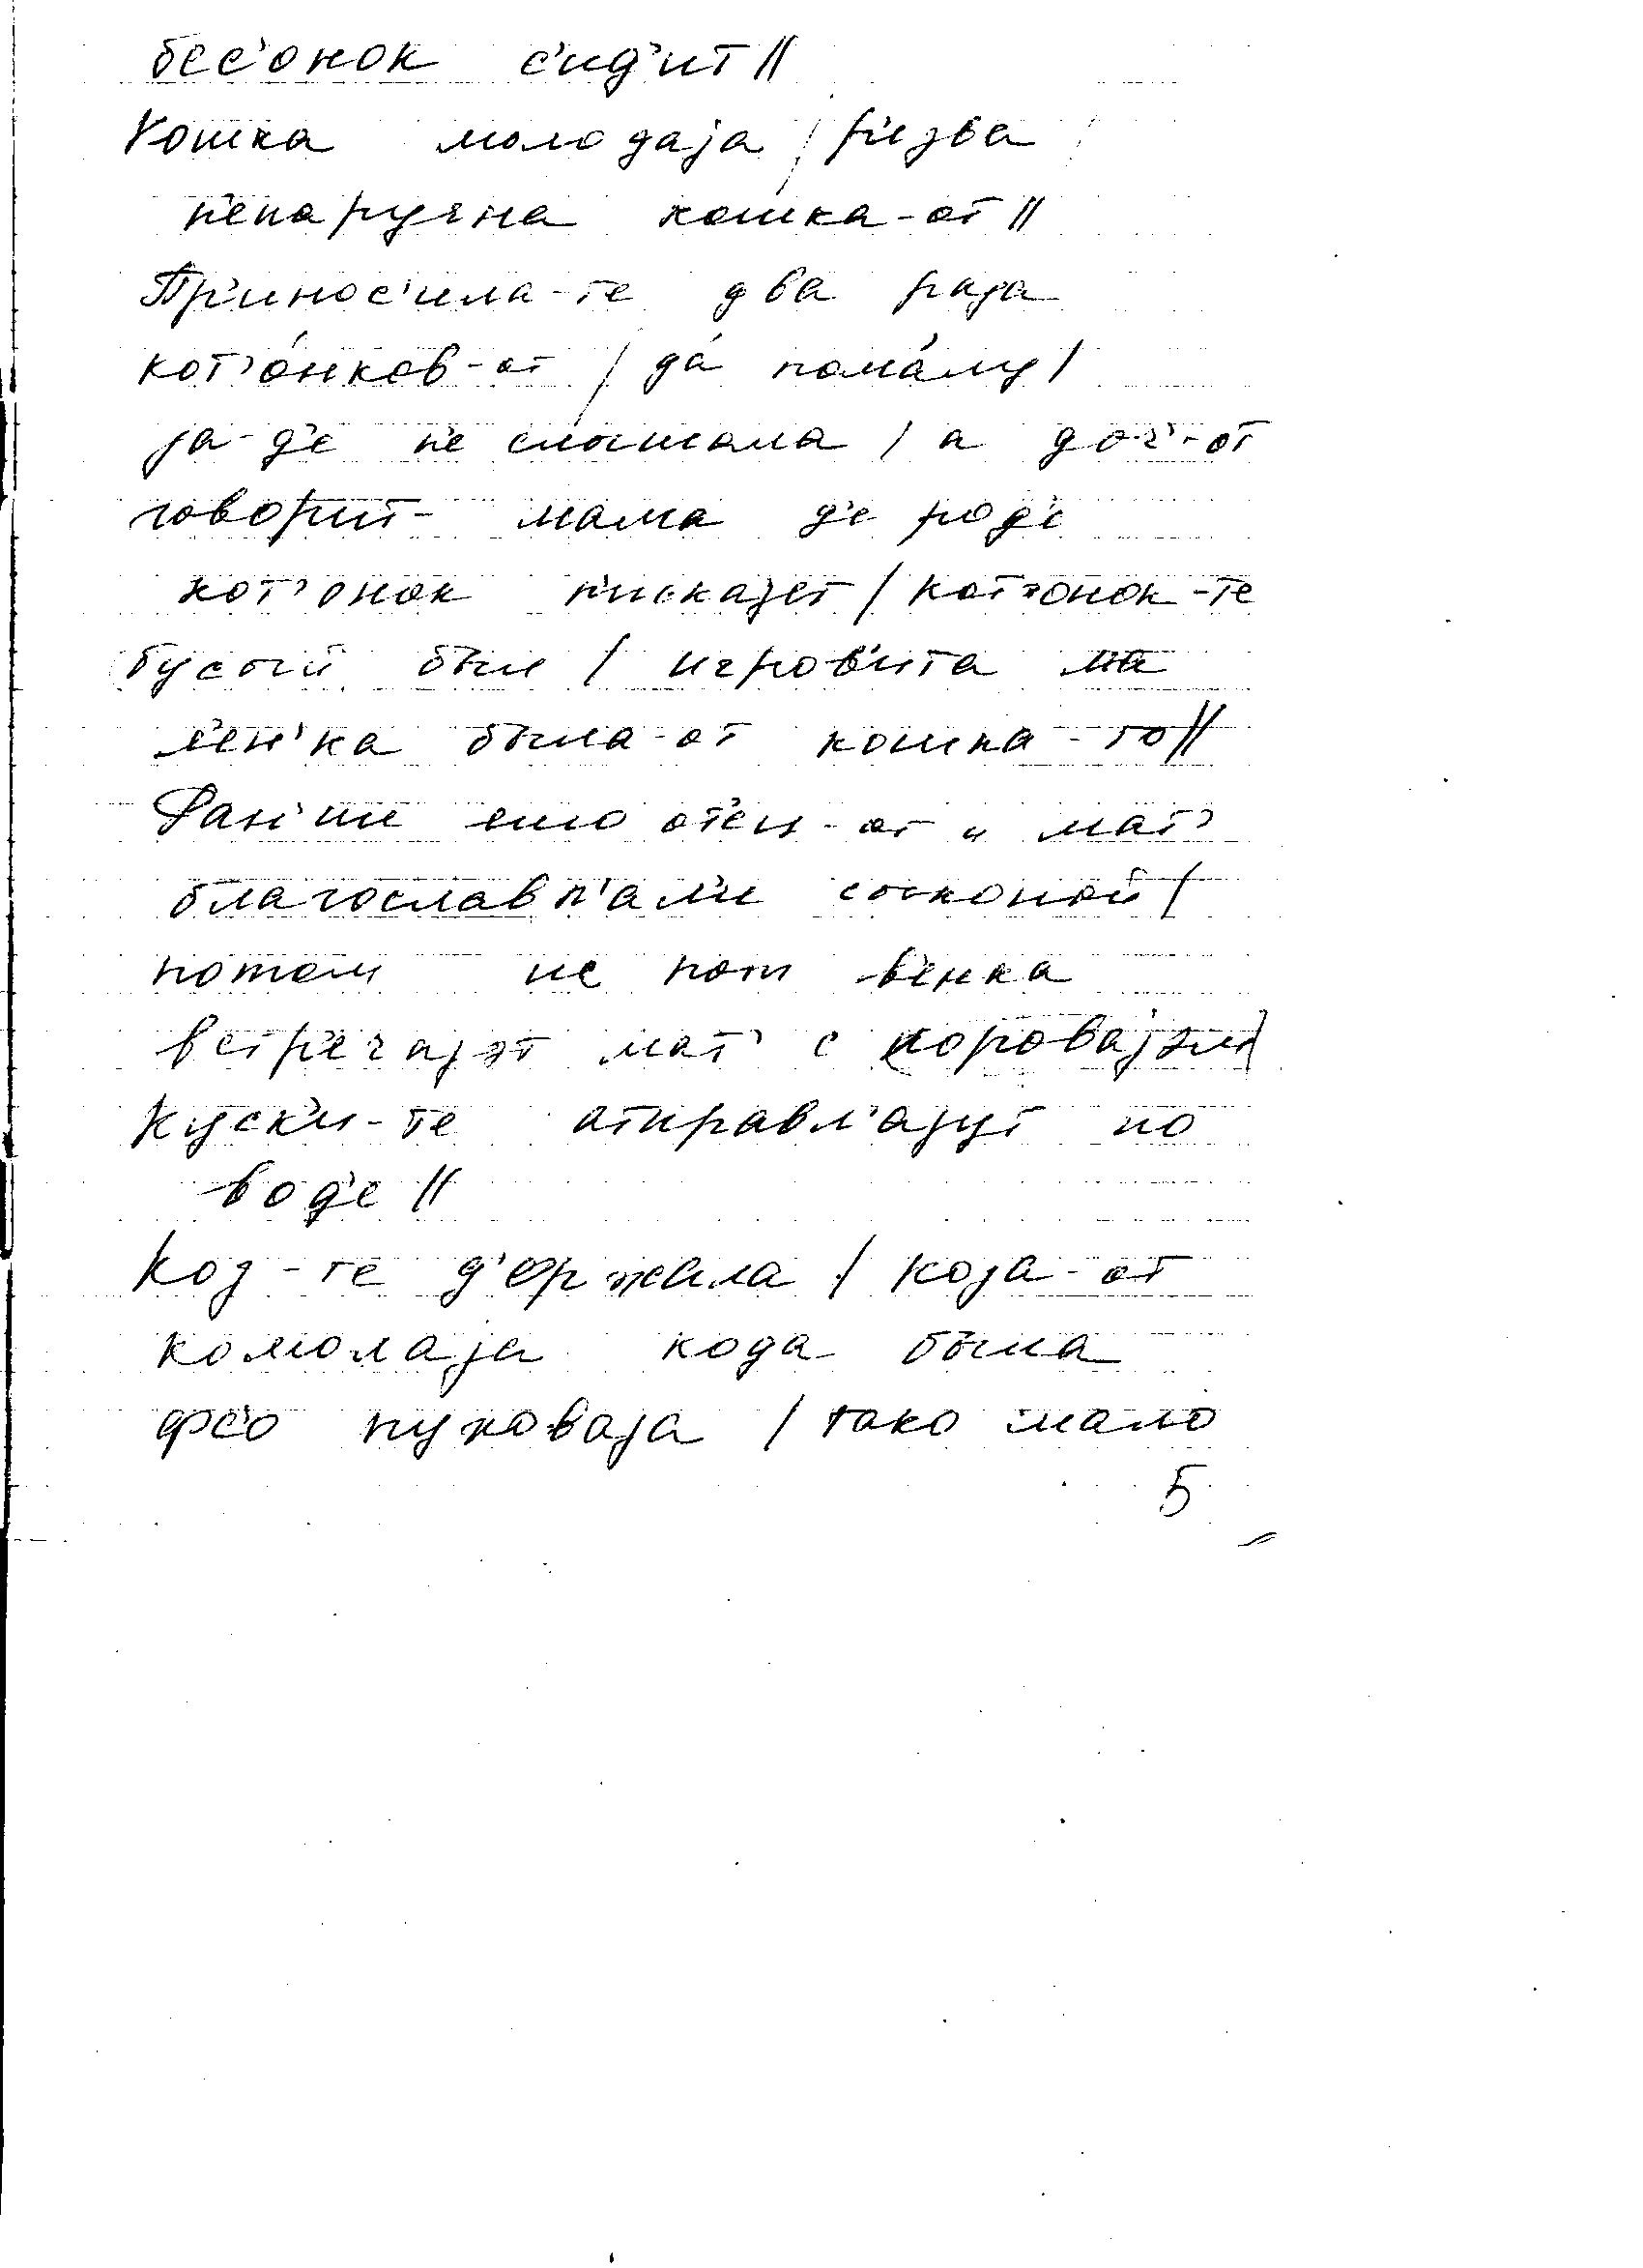 бес'онок с'ид'ит //
Кошка молодаjа / р'езва
н'епаручна кошка-от //
Пр'инос'ила-те два раза
кот'о́нков-от / да́ пома́лу /
jа-д'е н'е слышала / а доч'-от
говор'ит- мама д'е род'е
кот'онок п'искаjет / кот'онок-те
бусой был / игров'ита ма
л'ен'ка была-от кошка-то //
Ран'ше ешо от'ец-от и мат'
благославл'ал'и сосконой /
потом п'е пот в'енка
встр'ечаjэт мат' с коровајэм /
куск'и-те атправл'аjут по
вод'е //
Коз-те д'оржала / коза-от
комолаjа кода была
фс'о пуховаjа / тако мало
5